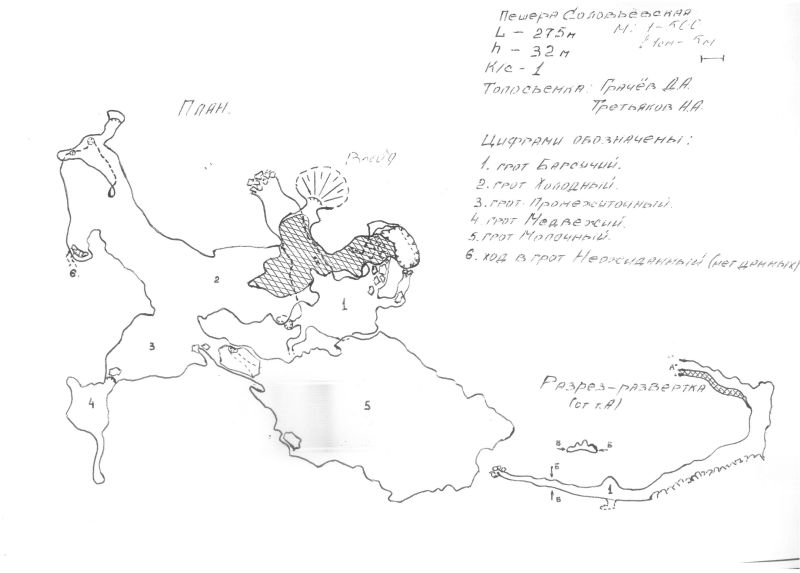 Пещера Соловьёвская
L - 275м
М: 1-
h - 32м
К/с - 1
Топосъемка: Грачёв Д.А.
Третьяков И.А.
План.
Вход
Цифрами обозначены:
1. грот Барсичий.
2. грот Холодный.
3. грот Промежуточный.
4 грот Медвежий.
5. грот Молочный.
6. ход в грот Неожиданный (нет данных)
6.
2
1
3
4
5
Разрез-развертка
(от т.А)
А
Б
Б
Б
Б
1